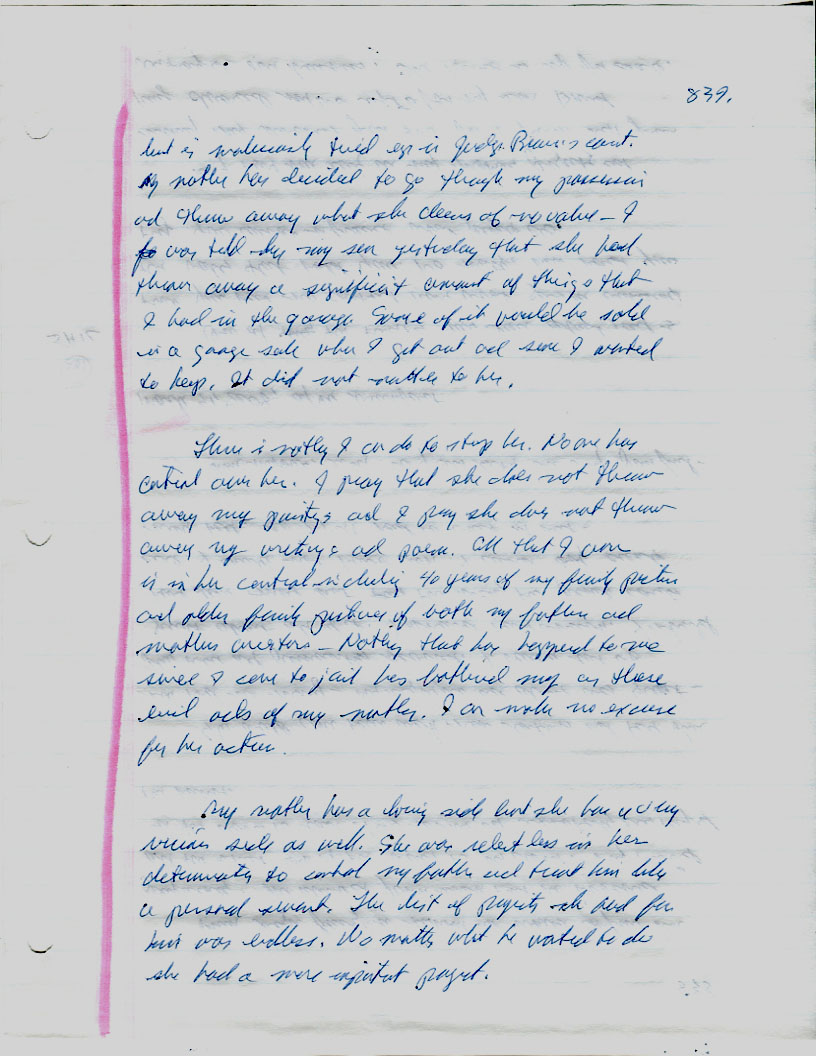 839.
but is maliciously tried again in Judge court.
My mother has decided to go through my possession
and throw away what she deems of no value - I
was told by my son yesterday that she had
thrown away a significant amount of things that
I had in the garage. Some of it would be sold
in a garage sale when I get out and some I wanted
to keep. It did not matter to her.
There is nothing I can do to stop her. No one has
control over her. I pray that she does not throw
away my paintings and I pray she does not throw
away my writings and poem. All that I own
is in her control including 40 years of my family pictures
and older family pictures of both my father and
mothers ancestors - Nothing that has happened to me
since I came to jail has bothered me as these
evil acts of my mother. I can make no excuse
for her action.
My mother has a loving side but she has a very
vicious side as well. She was relentless in her
determination to control my father and treat him like
a personal servant. The list of projects she had for
him was endless. No matter what he wanted to do
she had a more important project.